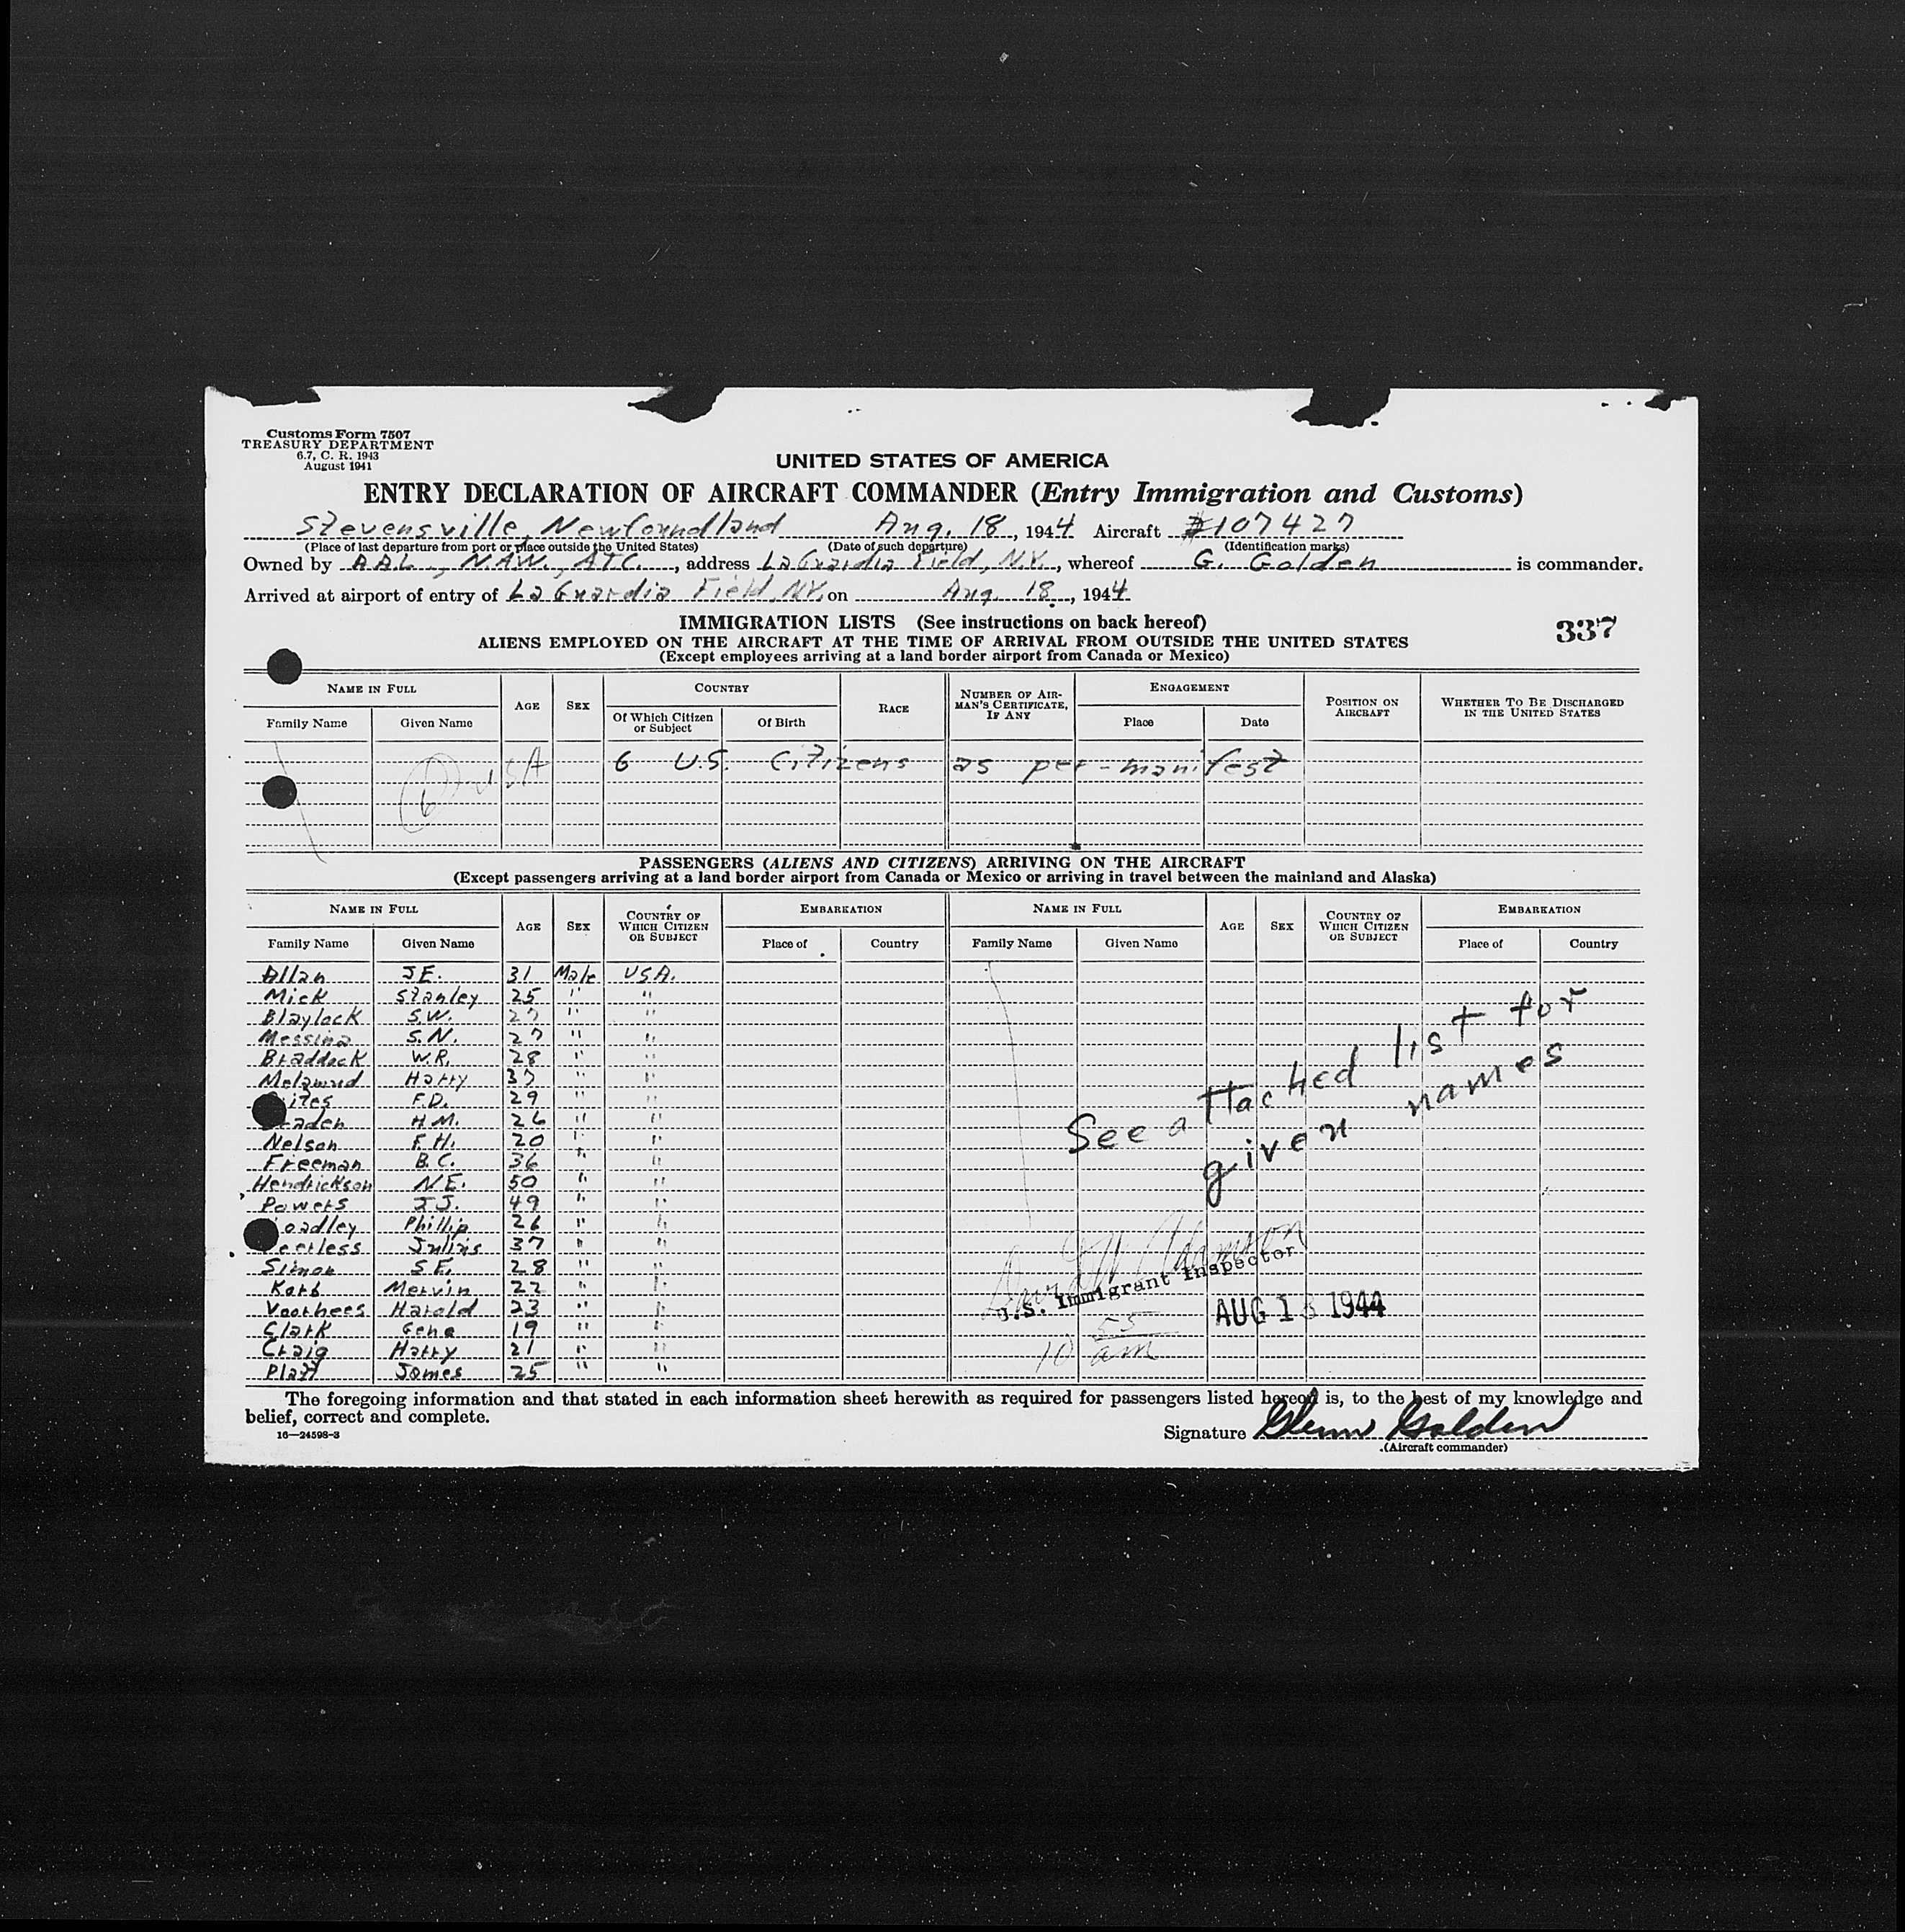 Customs Form 7507
TREASURY DEPARTMENT
6.7, C. R. 1943
August 1941
UNITED STATES OF AMERICA
ENTRY DECLARATION OF AIRCRAFT COMMANDER (Entry Immigration and Customs)
Stevensville, Newfoundland Aug. 18, 1944 Aircraft #107427
(Place of last departure from port or place outside the United States) (Date of such departure) (Identification marks)
Owned by AAL, NAW, ATC., address LaGuardia Field, N.Y., whereof G. Golden is commander.
Arrived at airport of entry of LaGuardia Field, NY. on Aug. 18, 1944
IMMIGRATION LISTS (See instructions on back hereof)
337
ALIENS EMPLOYED ON THE AIRCRAFT AT THE TIME OF ARRIVAL FROM OUTSIDE THE UNITED STATES
(Except employees arriving at a land border airport from Canada or Mexico)
NAME IN FULL AGE SEX COUNTRY RACE NUMBER OF AIRMAN'S CERTIFICATE, IF ANY ENGAGEMENT POSITION ON AIRCRAFT WHETHER TO BE DISCHARGED IN THE UNITED STATES
Family Name Given Name Of Which Citizen or Subject Of Birth Place Date
6 U.S. Citizens as per-manifest
6 USA
PASSENGERS (ALIENS AND CITIZENS) ARRIVING ON THE AIRCRAFT
(Except passengers arriving at a land border airport from Canada or Mexico or arriving in travel between the mainland and Alaska)
NAME IN FULL AGE SEX COUNTRY OF WHICH CITIZEN OR SUBJECT EMBARKATION NAME IN FULL AGE SEX COUNTRY OF WHICH CITIZEN OR SUBJECT EMBARKATION
Family Name Given Name Place of Country Family Name Given Name Place of Country
Allan J.E. 31 Male USA.
Mick Stanley 25 " "
Blaylock S.W. 27 " "
Messina S.N. 27 " "
Braddock W.R. 28 " "
Harry 37 " "
F.D. 29 " "
H.M. 26 " "
Nelson F.H. 20 " "
Freeman B.C. 36 " "
Hendrickson N.E. 50 " "
Powers J.J. 49 " "
oadley Phillip 26 " "
Julius 37 " "
Simon S.E. 28 " "
Korb Mervin 22 " "
Voorhees Harold 23 " "
Clark Gene 19 " "
Craig Harry 21 " "
Platt James 25 " "
See attached list for
given names
U.S. Immigrant Inspector
AUG 18 1944
10 55 am
The foregoing information and that stated in each information sheet herewith as required for passengers listed hereon is, to the best of my knowledge and
belief, correct and complete.
16—24598-3
Signature Glenn Golden
(Aircraft commander)